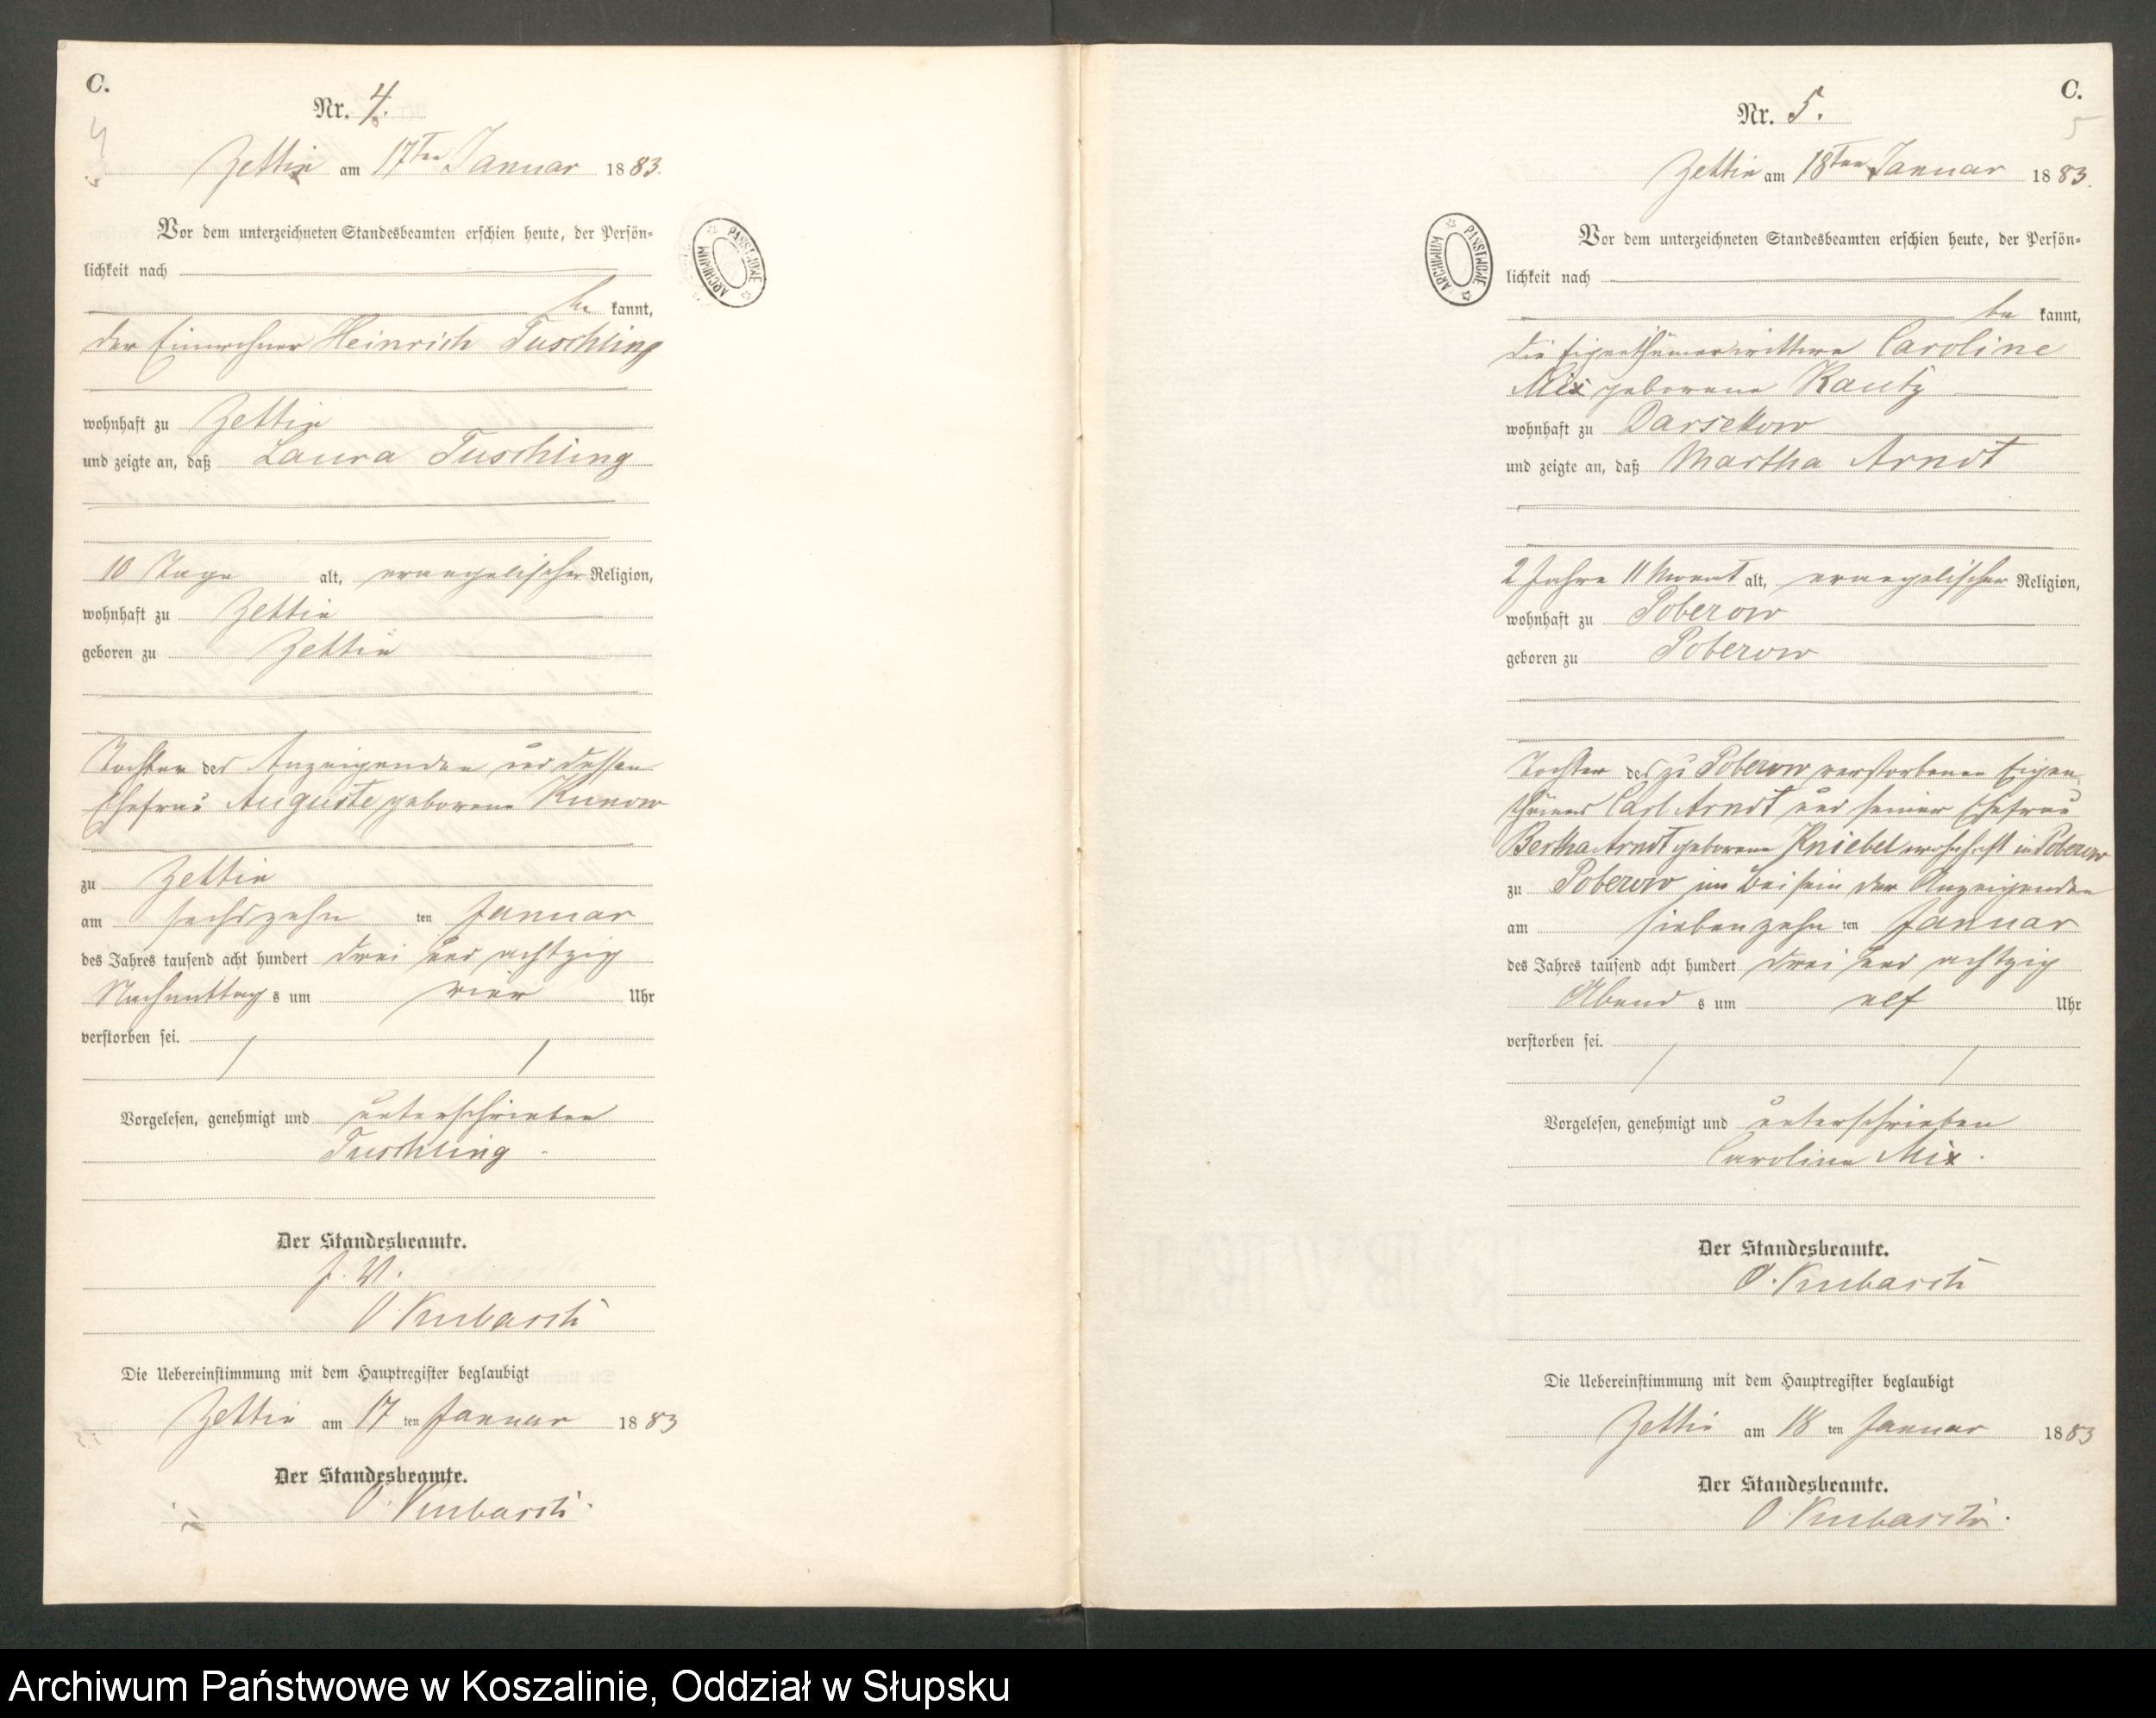 C.
Nr. 4.
4
Zettin am 17ten Januar 1883.
Vor dem unterzeichneten Standesbeamten erschien heute, der Persön-
lichkeit nach
be kannt,
der Einwohner Heinrich Tuschling
wohnhaft zu Zettin
und zeigte an, daß Laura Tuschling
10 Tage alt, evangelischer Religion,
wohnhaft zu Zettin
geboren zu Zettin
Tochter des Anzeigenden und dessen
Ehefrau Auguste geborene Kunow
zu Zettin
am sechszehn ten Januar
des Jahres tausend acht hundert drei und achtzig
Nachmittag s um vier Uhr
verstorben sei.
Vorgelesen, genehmigt und unterschrieben
Tuschling
Der Standesbeamte.
J. V.
O. Kubasch
Die Uebereinstimmung mit dem Hauptregister beglaubigt
Zettin am 17 ten Januar 1883
Der Standesbeamte.
O. Kubasch.
ARCHIWUM PAŃSTWOWE
C.
Nr. 5.
5
Zettin am 18ten Januar 1883.
Vor dem unterzeichneten Standesbeamten erschien heute, der Persön-
lichkeit nach
be kannt,
die Eigenthümerwittwe Caroline
Mix geborene Rautz
wohnhaft zu Darsekow
und zeigte an, daß Martha Arndt
2 Jahre 11 Monat alt, evangelischer Religion,
wohnhaft zu Poberow
geboren zu Poberow
Tochter des zu Poberow verstorbenen Eigen-
thümers Carl Arndt und seiner Ehefrau
Bertha Arndt geborene Kniebel wohnhaft in Poberow
zu Poberow im Beisein der Anzeigenden
am siebenzehn ten Januar
des Jahres tausend acht hundert drei und achtzig
Abend s um elf Uhr
verstorben sei.
Vorgelesen, genehmigt und unterschrieben
Caroline Mix.
Der Standesbeamte.
O. Kubasch
Die Uebereinstimmung mit dem Hauptregister beglaubigt
Zettin am 18 ten Januar 1883
Der Standesbeamte.
O. Kubasch.
ARCHIWUM PAŃSTWOWE
Archiwum Państwowe w Koszalinie, Oddział w Słupsku